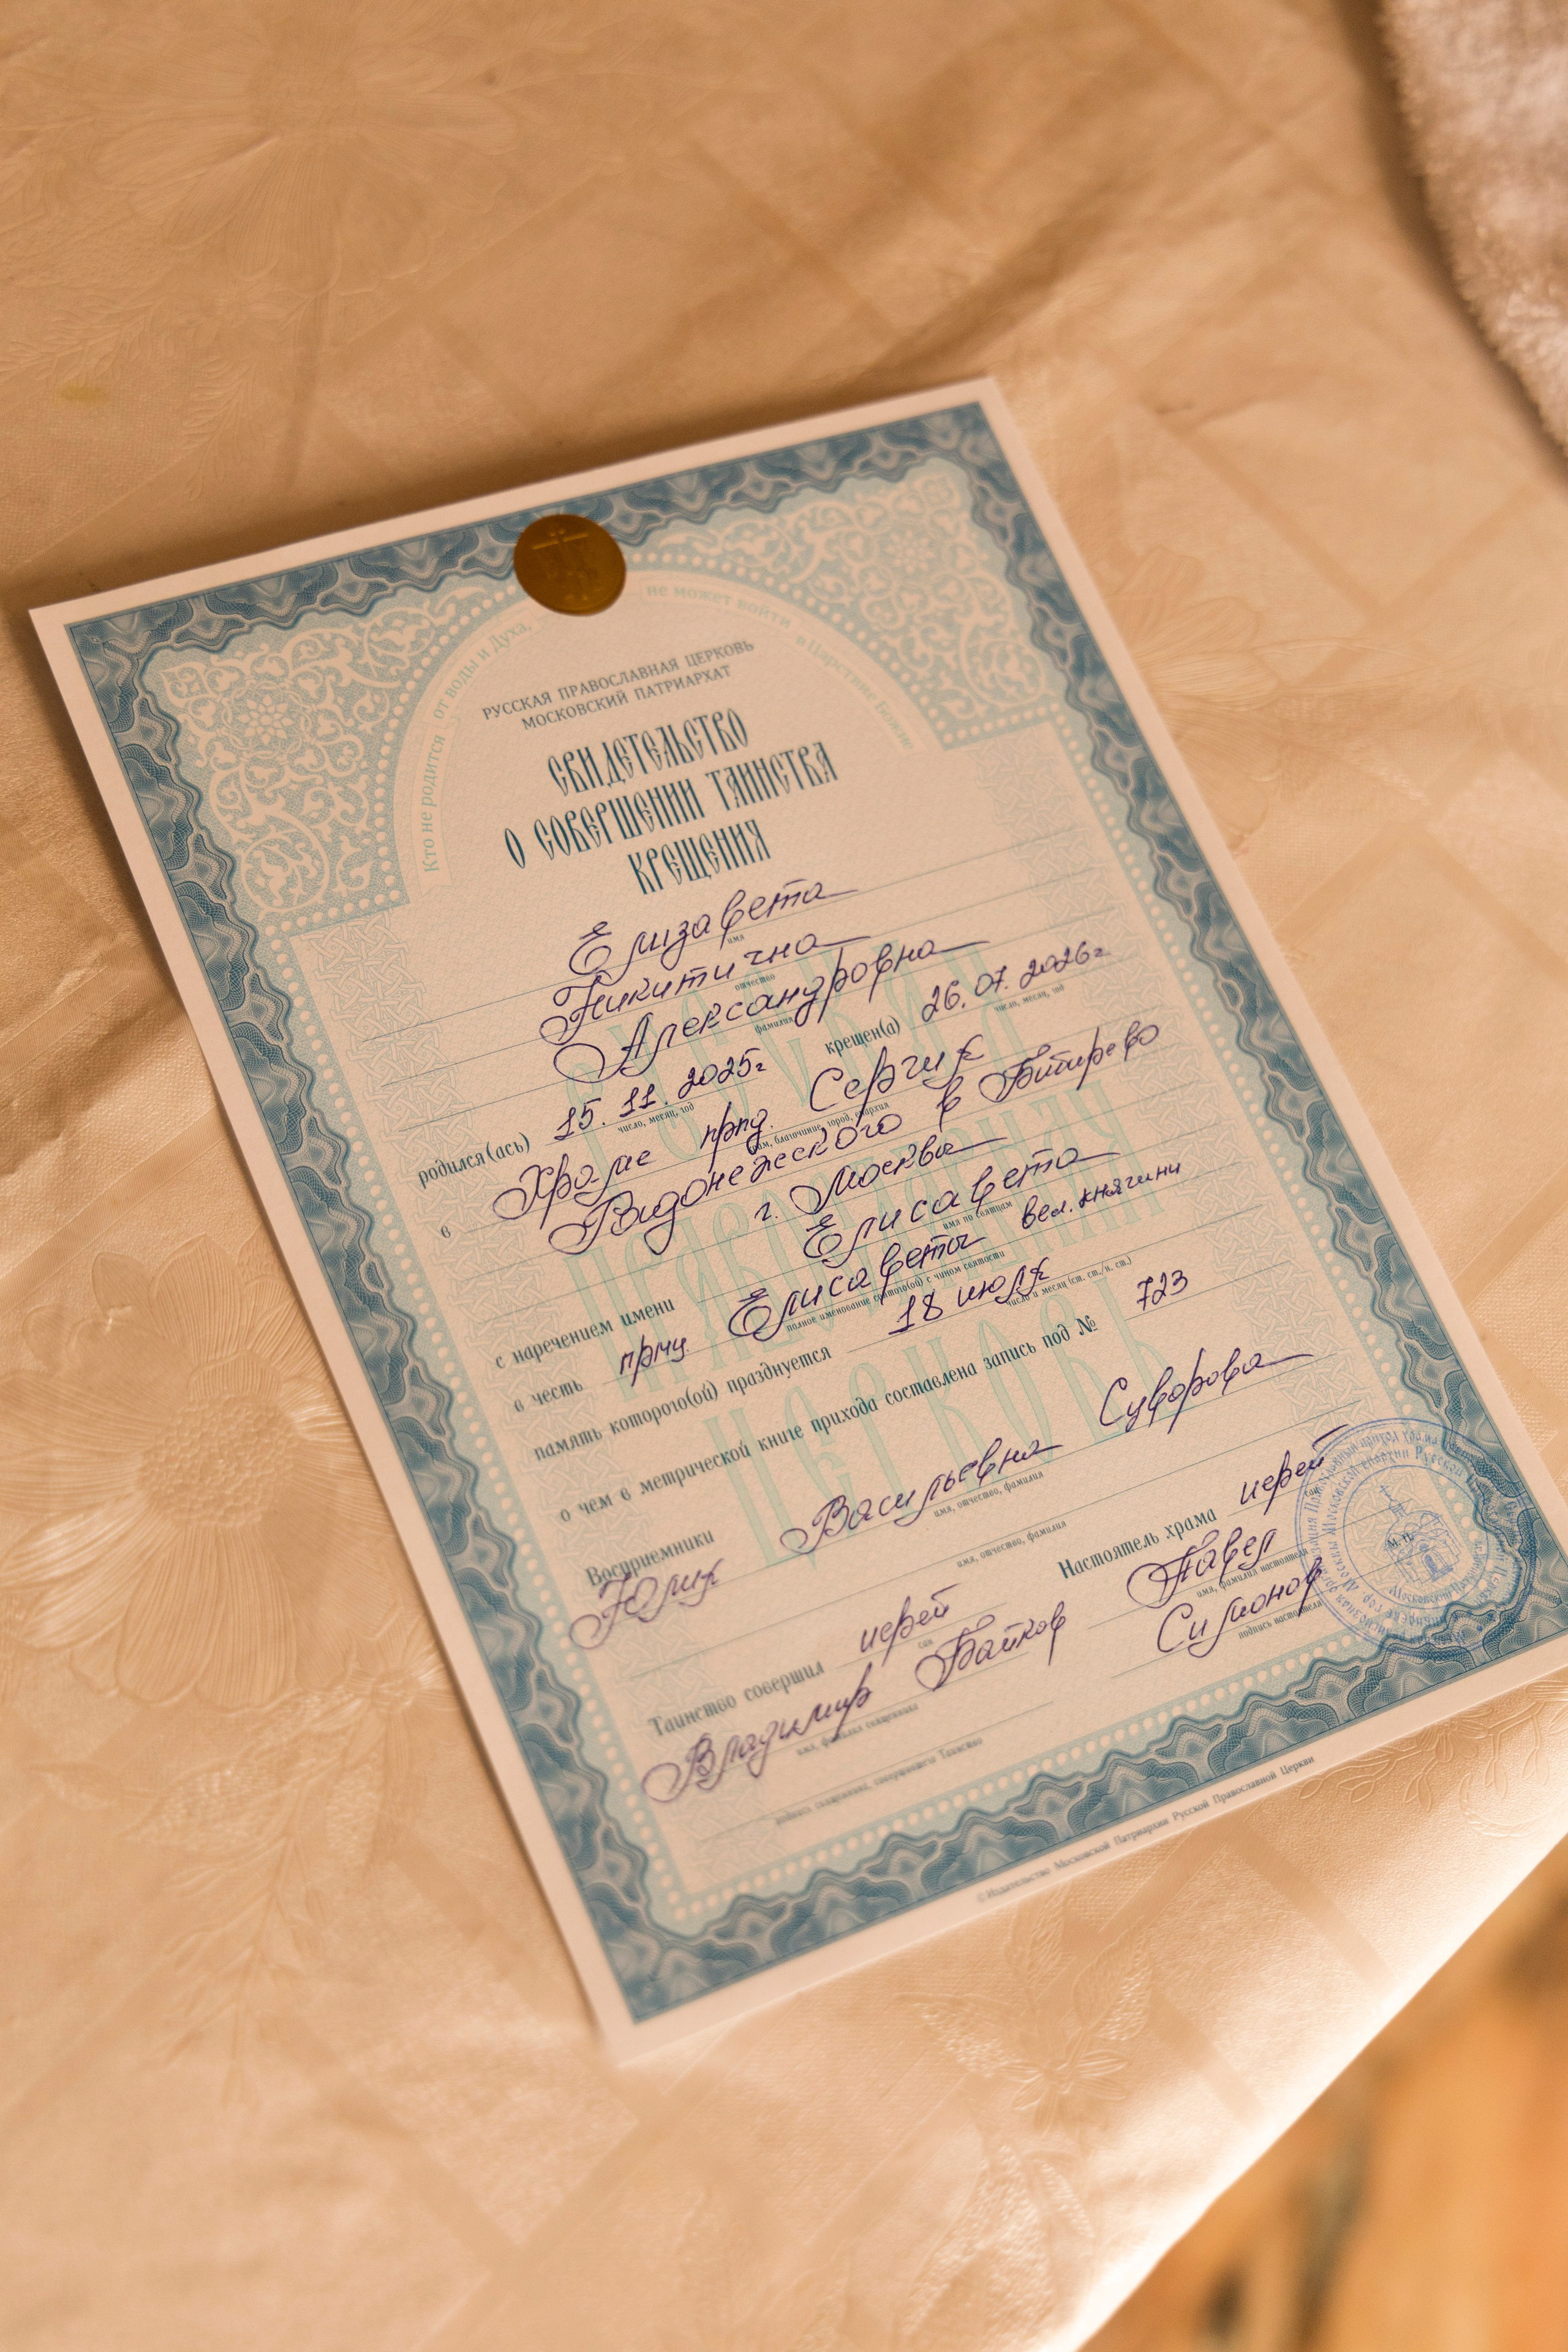 Кто не родится от воды и Духа, не может войти в Царствие Божие
РУССКАЯ ПРАВОСЛАВНАЯ ЦЕРКОВЬ
МОСКОВСКИЙ ПАТРИАРХАТ
СВИДЕТЕЛЬСТВО
О СОВЕРШЕНИИ ТАИНСТВА
КРЕЩЕНИЯ
Елизавета
имя
Никитична
отчество
Александровна
фамилия
родился(ась) 15.11.2025г крещен(а) 26.07.2026г
число, месяц, год число, месяц, год
в Храме прпд. Сергия
храм, благочиние, город, епархия
Радонежского в Бибирево
г. Москва
с наречением имени Елисавета
имя по святцам
в честь прмц. Елисаветы вел. княгини
полное именование святого(ой) с чином святости
память которого(ой) празднуется 18 июля
число и месяц (ст. ст./н. ст.)
о чем в метрической книге прихода составлена запись под № 723
Восприемники
Юлия Васильевна Суворова
имя, отчество, фамилия
имя, отчество, фамилия
Таинство совершил иерей
сан
Владимир Байков
имя, фамилия священника
подпись священника, совершившего Таинство
Настоятель храма иерей
сан
Павел
имя, фамилия настоятеля
Симонов
подпись настоятеля
М.П.
© Издательство Московской Патриархии Русской Православной Церкви